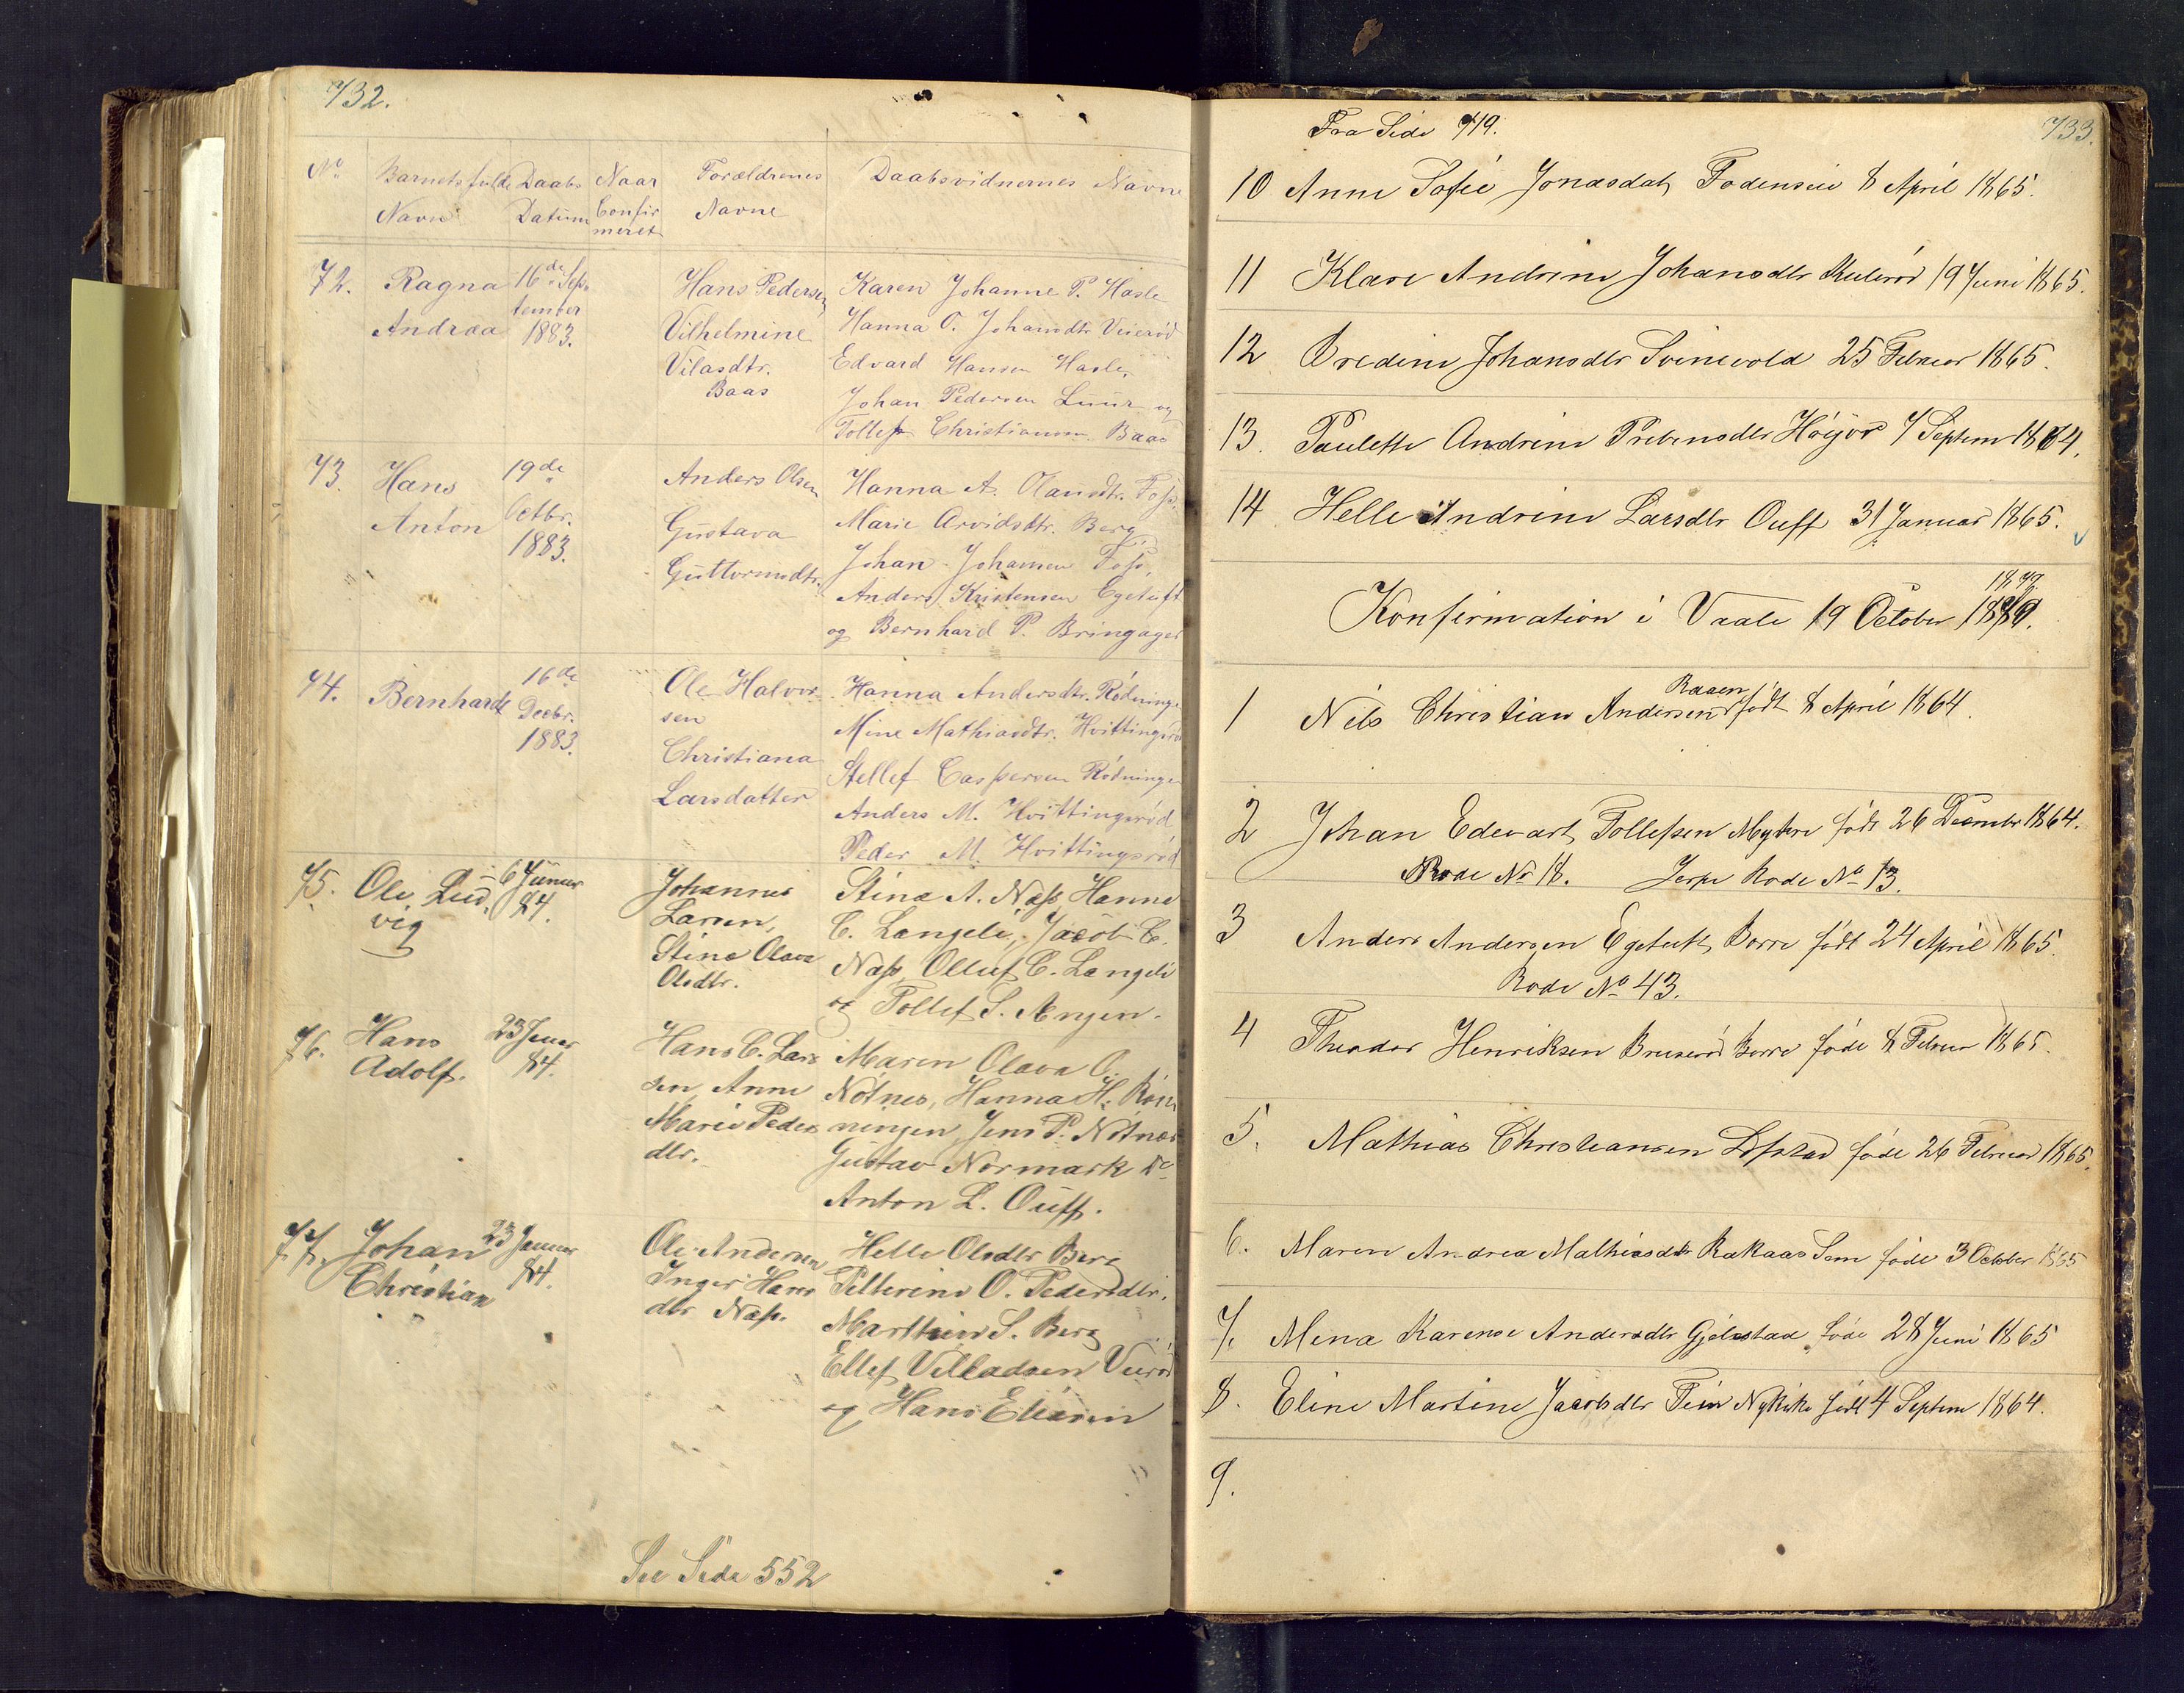 732.
No Barnets fulde Navn Daabs Datum Naar Confirmeret Forældrenes Navne Daabsvidnernes Navne
72. Ragna 16de Sep- Hans Pedersen, Karen Johanne P. Hasle
tember Hanna O. Johansdtr
Andrea 1883. Vilhelmine Edvard Hansen Hasle,
Vilasdtr. Johan Pedersen og
Baas Tollef Christiansen Baas
73. Hans 19de Anders Olsen Hanna A. Olausdtr. Foss,
Anton Octbr. Gustava Marie Arvidsdtr. Berg
1883. Guttormsdtr. Johan Johansen Foss,
Anders Kristensen Egetuft
og Bernhard P. Bringager
74. Bernhard 16de Ole Halvor- Hanna Andersdtr. Rödninge
Decbr. sen Mine Mathiasdtr. Hvittingsrød
1883. Christiana Stellef Caspersen Rødninge
Larsdatter Anders M. Hvittingsrød
Peder M. Hvittingsrød
75. Ole Lud- 6 Januar Johannes Stina A. Næss, Hanne
vig 84. Larsen, C. Langeli, Jacob C.
Stine Olava Næss, Olluf C. Langeli
Olsdtr. og Tollef S. Ængen.
76. Hans 23 Januar Hans C. Lars Maren Olava O.
Adolf. 84. sen, Anne Nötnes, Hanna H. Røn
Marie Peders ningen, Jens P. Nötnes
dtr. Gustav Normark &
Anton L. Ouff.
77. Johan 23 Januar Ole Andersen Helle Olsdtr Berg
Christian 84. Inger Hans Petterine O. Pedersdtr.
dtr Næss. Marthine S. Berg
Ellef Villadsen
og Hans
See Side 552
Fra Side 719. 733.
10 Anne Sofie Jonasdat 8 April 1865.
11 Klare Andrine Johansdtr 19 Juni 1865.
12 Bredine Johansdtr Svinevold 25 Februar 1865.
13. Paulette Andrine Prebensdtr Höijor 7 Septem 1864.
14 Helle Andrine Larsdtr Ouff 31 Januar 1865.
1879
Konfirmation i Vaale 19 October 1879.
Raaen
1 Nils Christian Andersen født 8 April 1864.
2 Johan Edevart Tollefsen Mykre född 26 Decembr 1864.
Rode No 18. Rode No 13.
3 Anders Andersen Egetuft, Borre født 24 April 1865.
Rode No 43.
4 Theodor Henriksen Bruserød Borre föde 8 Februar 1865.
5. Mathias Christiansen föde 26 Februar 1865.
6. Maren Andrea Mathiasdtr Rakaas Sem föde 3 October 1865
7. Mina Karense Andersdtr Gjelstad föde 28 Juni 1865
8. Eline Martine Jacobsdtr födt 4 Septem 1864.
9.